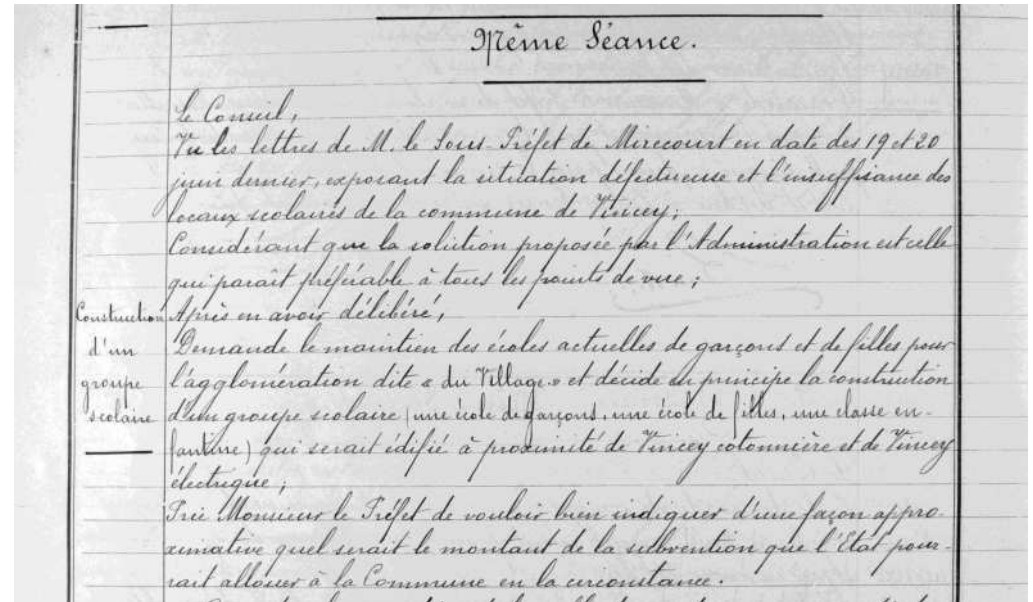 Même Séance.
Le Conseil,
Vu les lettres de M. le Sous-Préfet de Mirecourt en date des 19 et 20
juin dernier, exposant la situation défectueuse et l'insuffisance des
locaux scolaires de la commune de Vincey;
Considérant que la solution proposée par l'Administration est celle
qui paraît préférable à tous les points de vue;
Construction
d'un
groupe
scolaire
Après en avoir délibéré,
Demande le maintien des écoles actuelles de garçons et de filles pour
l'agglomération dite « du Village » et décide en principe la construction
d'un groupe scolaire (une école de garçons, une école de filles, une classe en-
fantine) qui serait édifié à proximité de Vincey cotonnière et de Vincey
électrique;
Prie Monsieur le Préfet de vouloir bien indiquer d'une façon appro-
ximative quel serait le montant de la subvention que l'Etat pour-
rait allouer à la Commune en la circonstance.